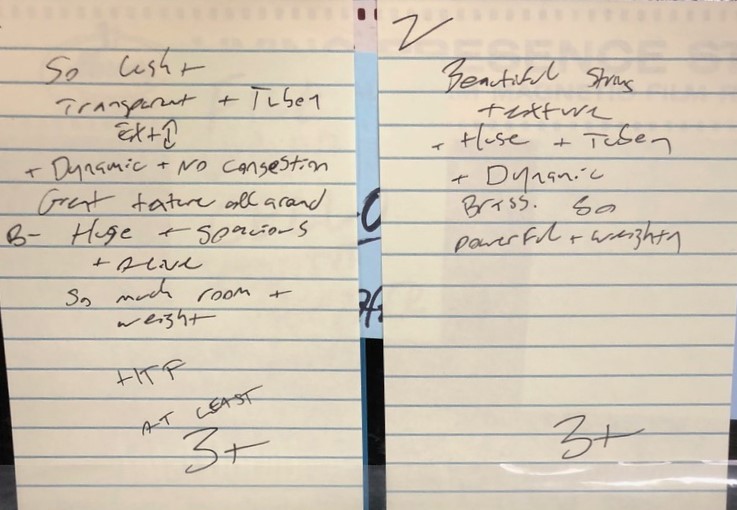 So lush +
Transparent + Tubey
Ext↕
+ Dynamic + No congestion
Great texture all around
B- Huge + spacious
+ Alive
So much room +
weight
HTF
AT LEAST
3+
2
Beautiful string
texture
+ Huge + Tubey
+ Dynamic
Brass. So
powerful + weighty
3+